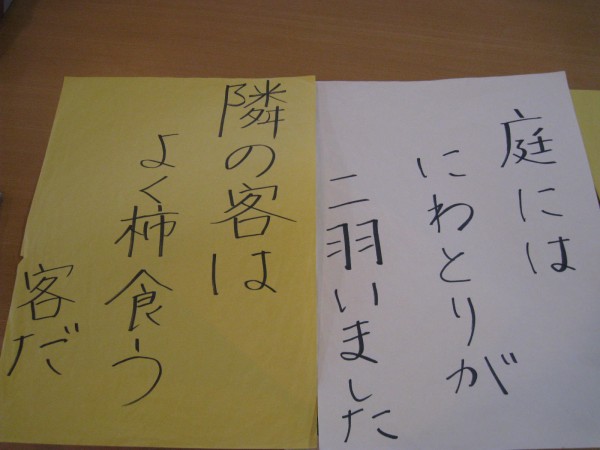 庭には
にわとりが
二羽いました
隣の客は
よく柿食う
客だ